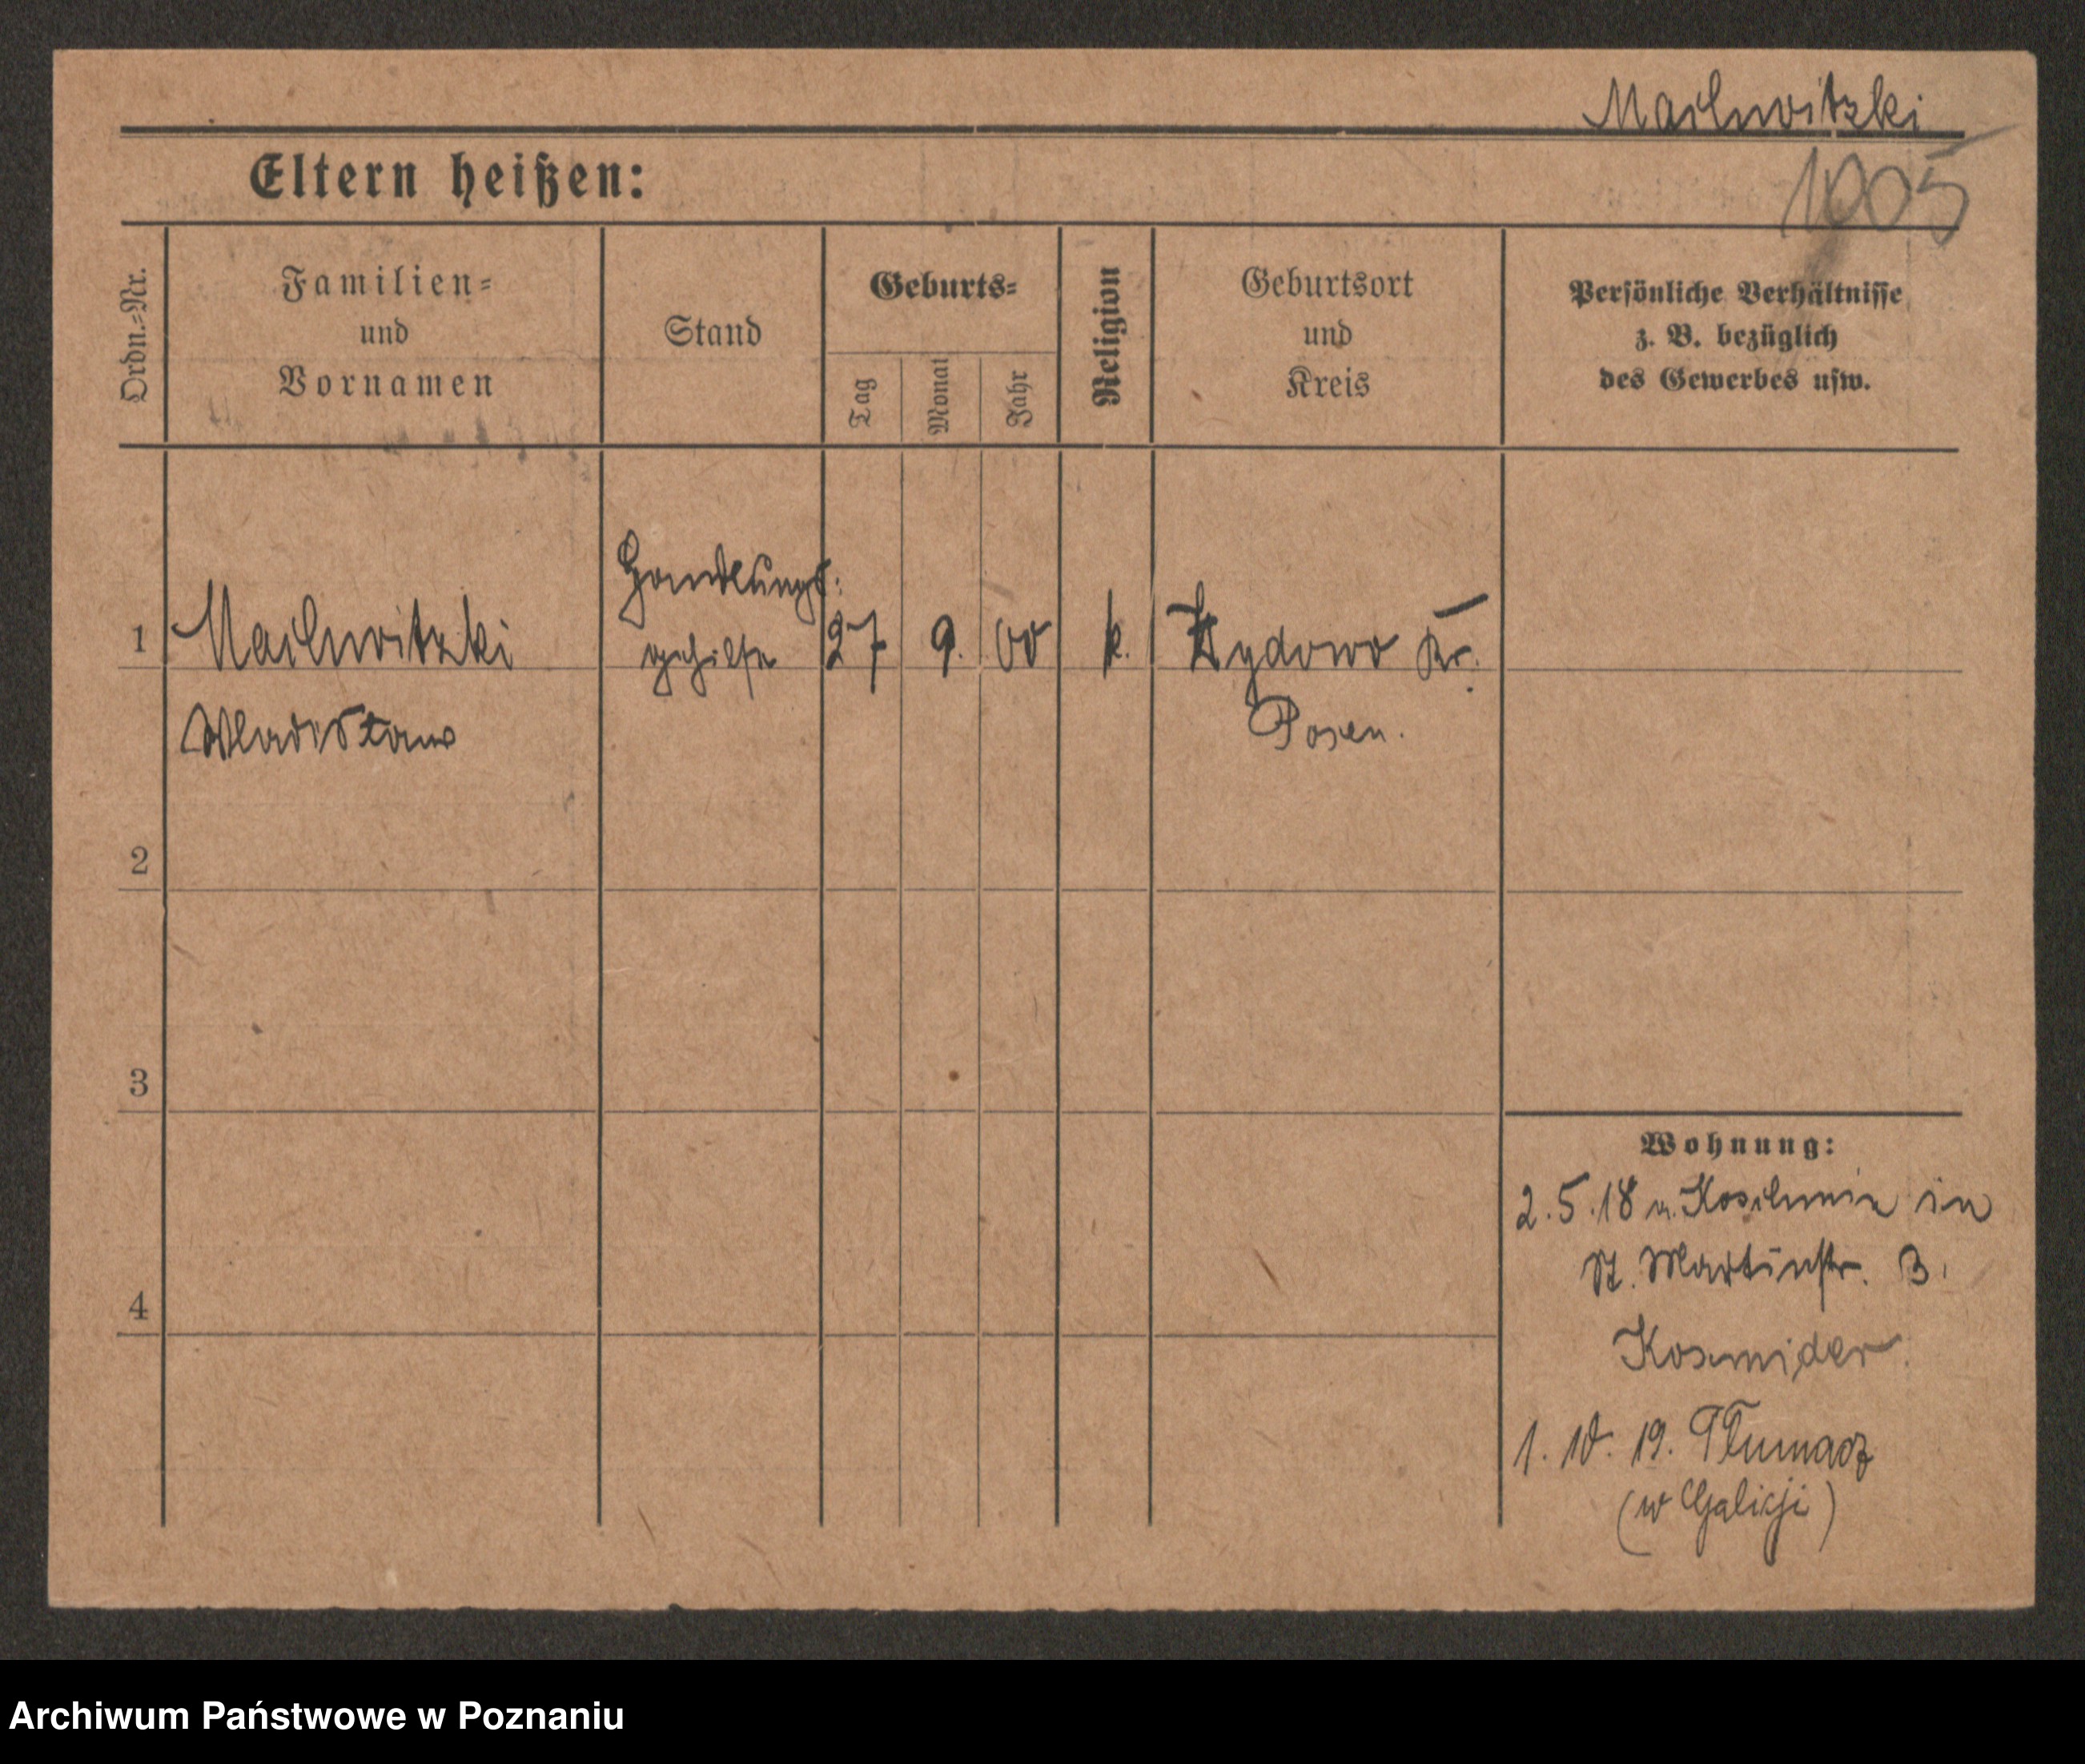 Machwitzki
1005
Eltern heißen:
Ordn.-Nr.
Familien-
und
Vornamen
Stand
Geburts-
Tag
Monat
Jahr
Religion
Geburtsort
und
Kreis
Persönliche Verhältnisse
z. B. bezüglich
des Gewerbes usw.
Handlungs-
1 Machwitzki gehilfe 27 9. 00 k. Zydowo Kr.
Wladislaus Posen.
2
3
4
Wohnung:
2. 5. 18 in
St. Martinstr. 3.
Kosmider.
1. 10. 19. Tłumacz
(w Galicji)
Archiwum Państwowe w Poznaniu